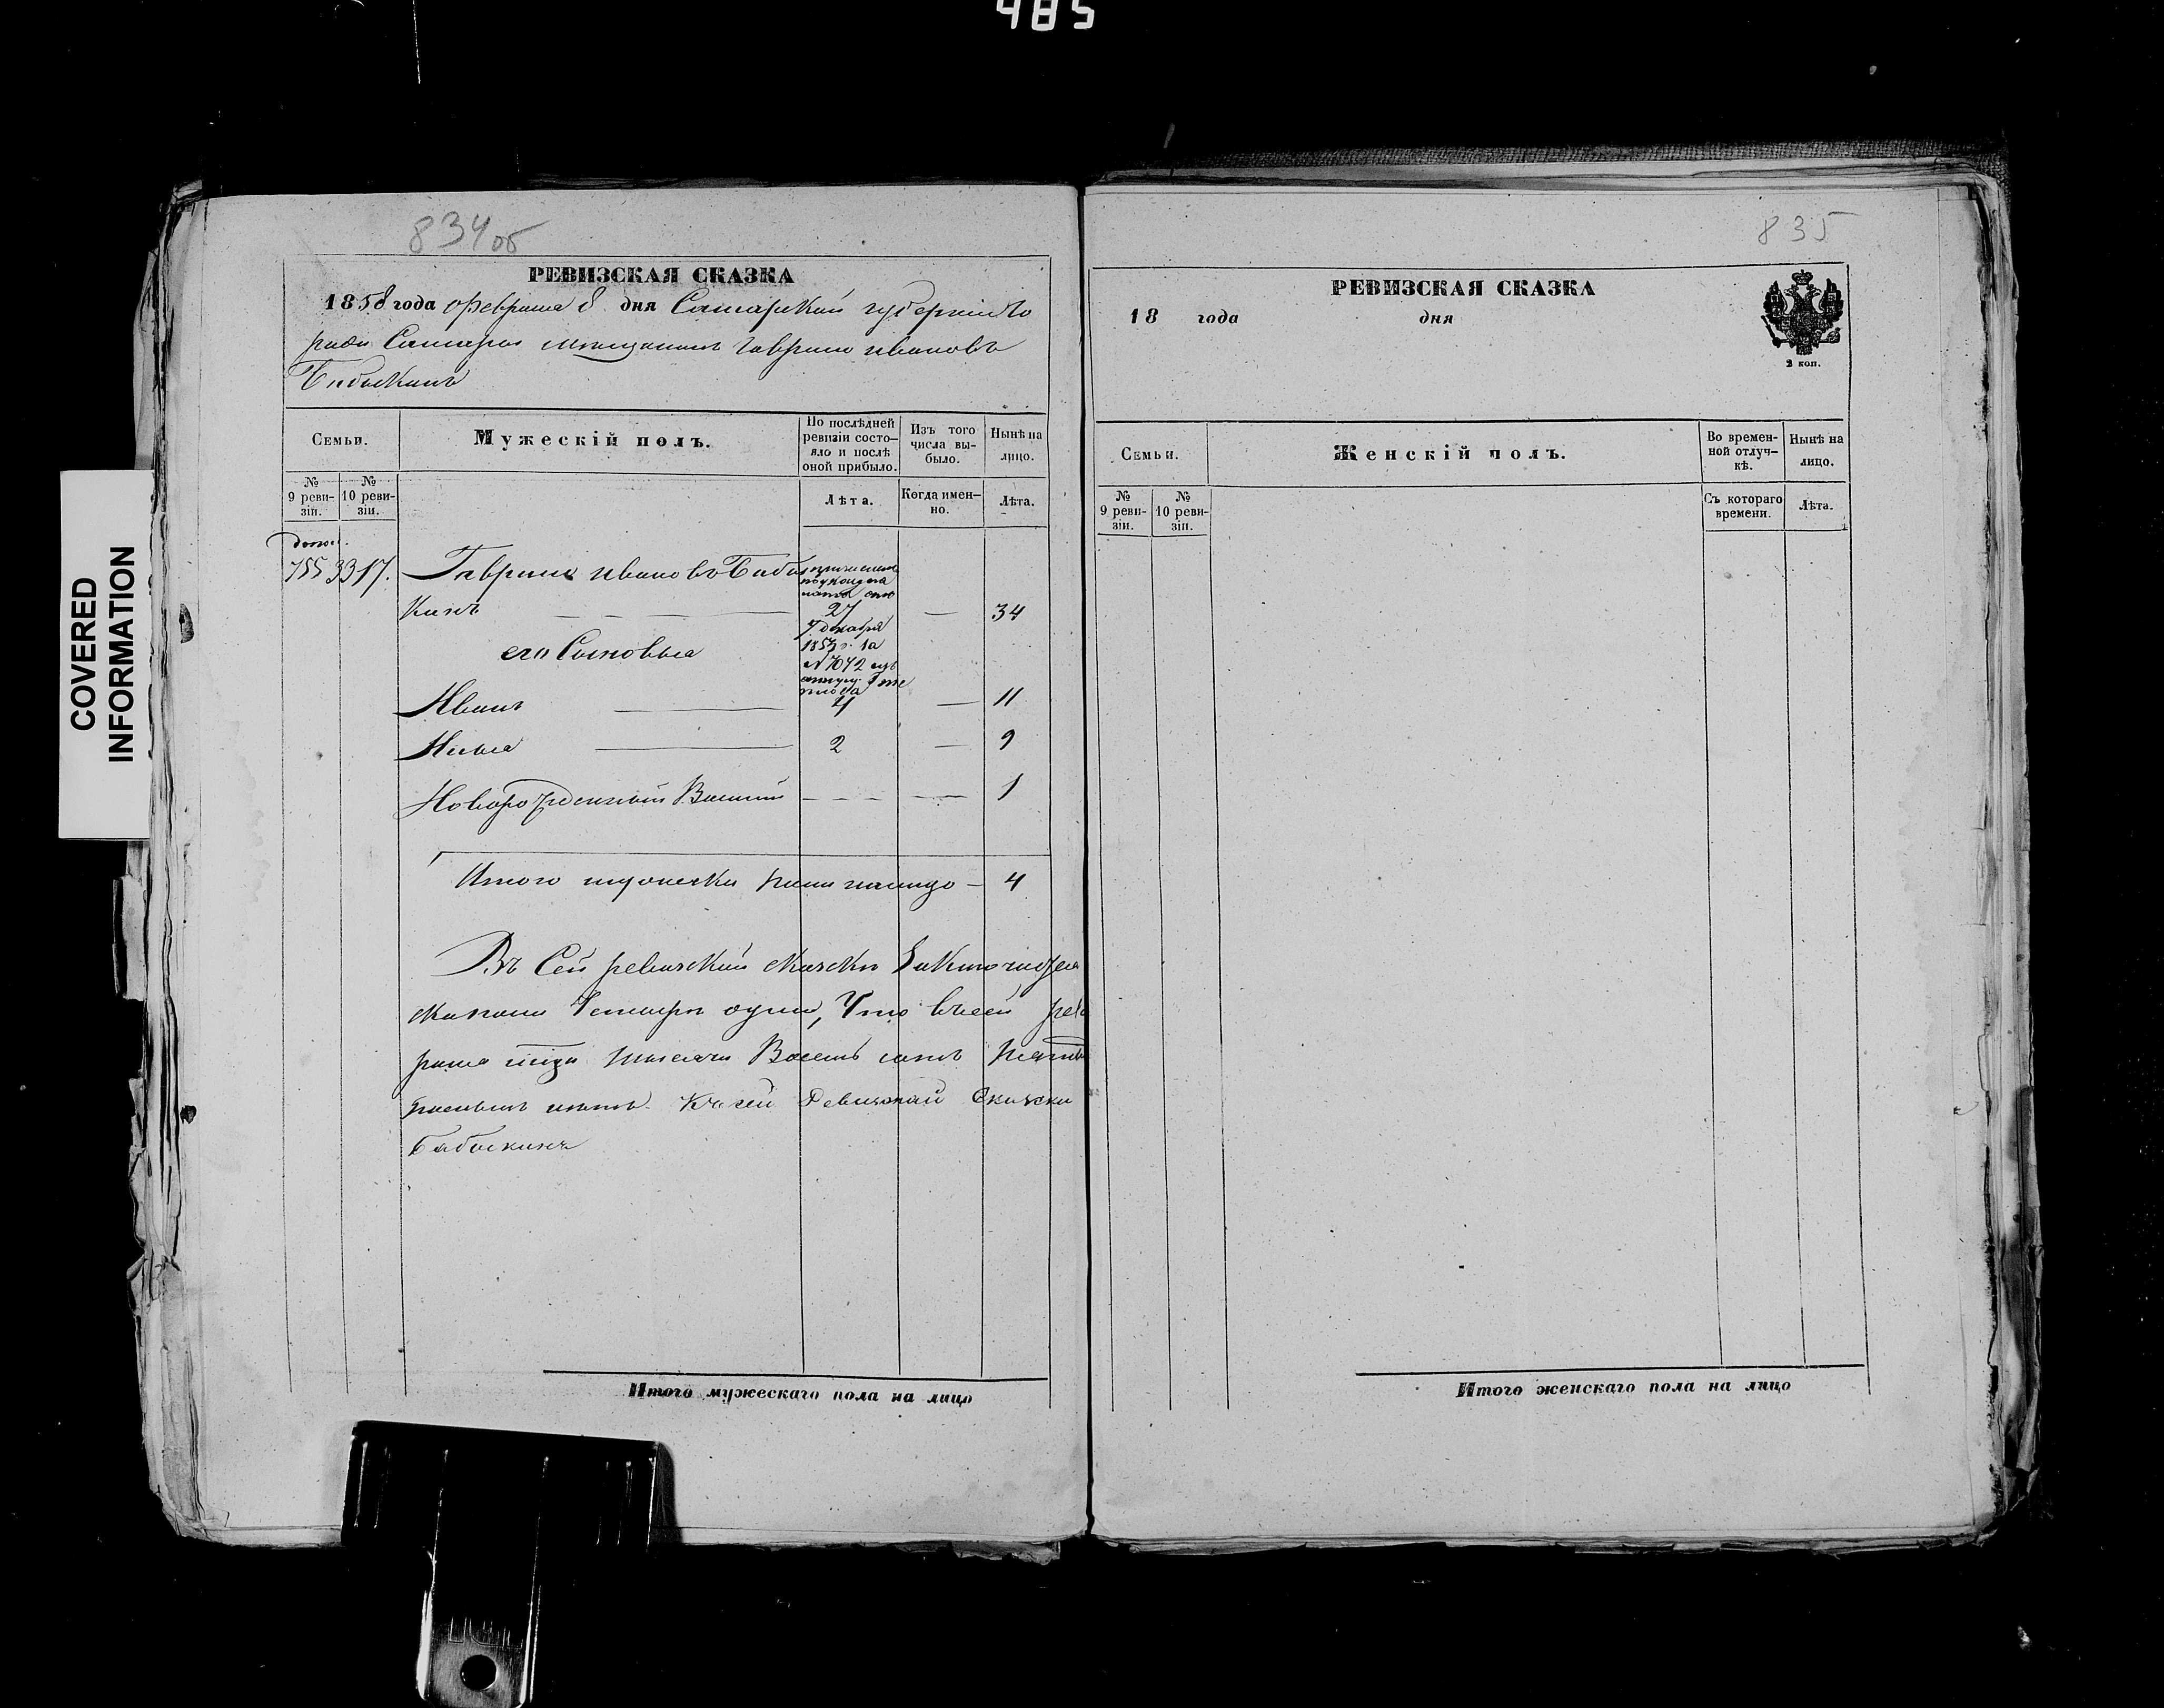 485
COVERED
INFORMATION
834об
РЕВИЗСКАЯ СКАЗКА
1858 года Февраля 8 дня Самарской губернии го
рода Самары мещанина Гаврила Иванова
Бабыкина
Семьи.
Мужескій полъ.
По послѣдней
ревизіи состо-
яло и послѣ
оной прибыло.
Изъ того
числа вы-
было.
Нынѣ на
лицо.
№
9 реви-
зіи.
№
10 реви-
зіи.
Лѣта.
Когда имен-
но.
Лѣта.
допол.
755 3317. Гаврила Ивановъ Бабы
кинъ 27 — 34
7 декабря
1853 г. за
№ 7042
его Сыновья
Иванъ 4 — 11
Илья 2 — 9
Новорожденный Василій — — 1
Итого мужеска пола налицо — 4
Въ Сей ревизской сказкѣ
Четыре души, Что въ сей
тысяча Восемь сотъ
нѣтъ. Къ сей Ревизской Сказки
Бабыкинъ
Итого мужескаго пола на лицо
835
РЕВИЗСКАЯ СКАЗКА
18 года дня
2 коп.
Семьи.
Женскій полъ.
Во времен-
ной отлуч-
кѣ.
Нынѣ на
лицо.
№
9 реви-
зіи.
№
10 реви-
зіи.
Съ котораго
времени.
Лѣта.
Итого женскаго пола на лицо